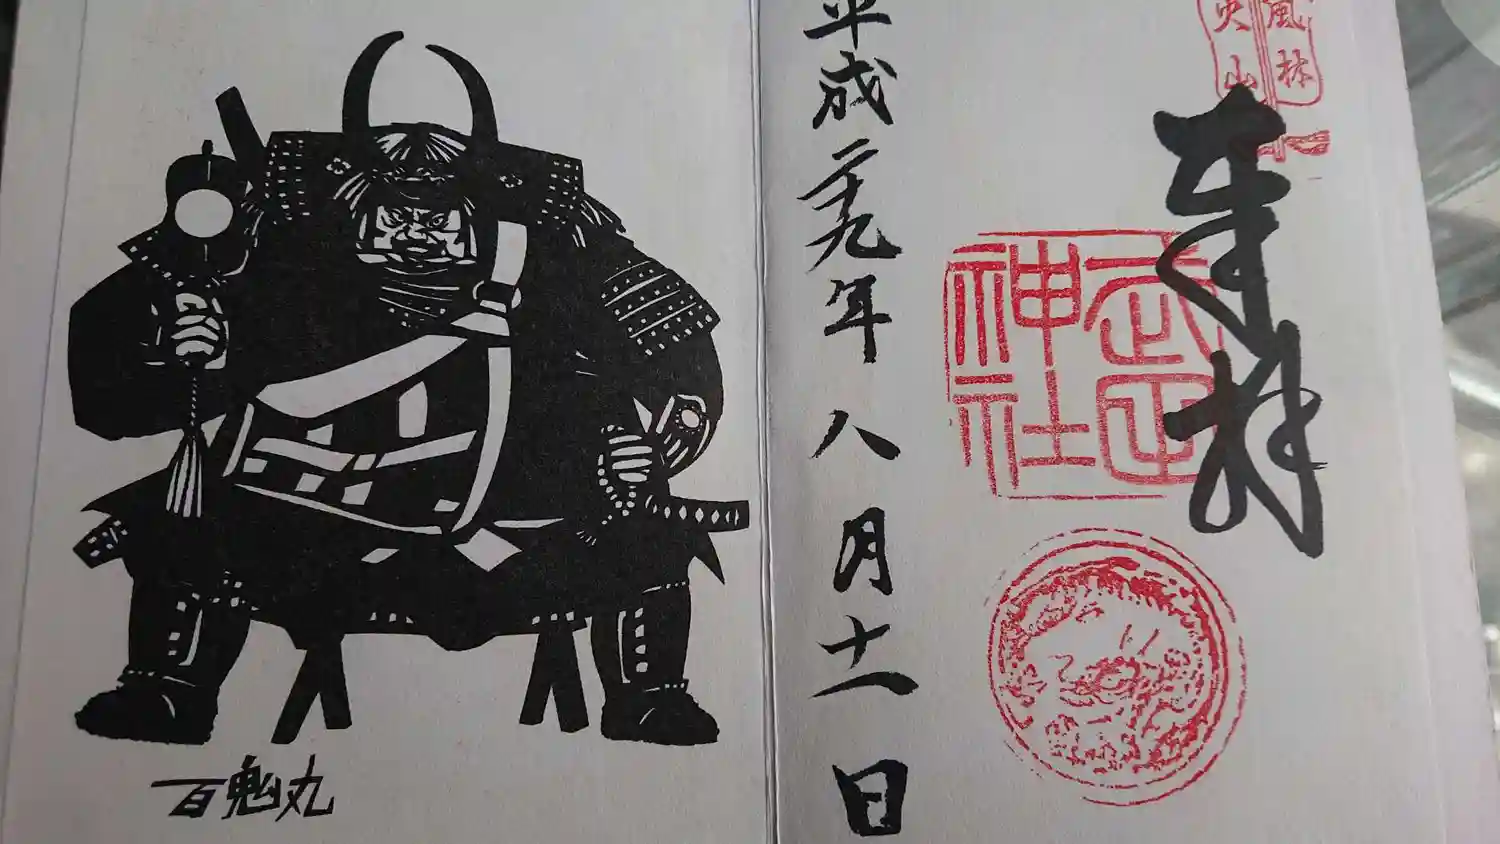 風林
火山
奉拝
武田
神社
平成二十九年八月十一日
百鬼丸